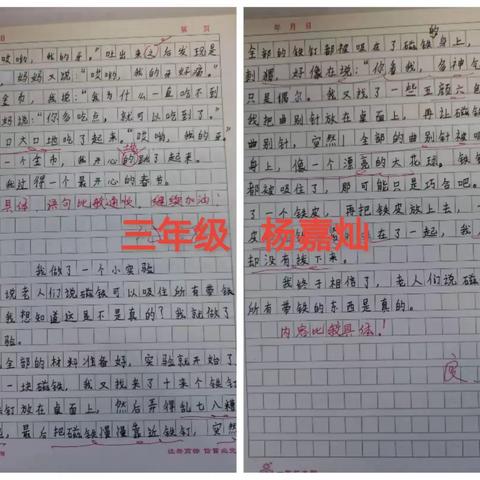 第 页
哎哟，我的牙。”吐出来之后发现是
，妈妈又说：“哎哟，我的牙好痛。”
金币，我说：“我为什么一直吃不到
妈说：“你多吃点，就可以吃到了。”
口大口地吃了起来。“哎哟，我的牙。”
一个金币，我开心的跳了起来。
我过得一个最开心的春节。
具体，语句比较通顺，继续加油！
我做了一个小实验
说老人们说磁铁可以吸住所有带铁
我想知道这是不是真的？我就做了
验。
全部的材料准备好，实验就开始了
一块磁铁，我又找来了十来个铁钉
钉放在桌面上，然后弄得乱七八糟
，最后把磁铁慢慢靠近铁钉，突然
年 月 日
全部的铁钉都被吸在了磁铁的身上，
刺猬，好像在说：“你看我，多神气
只是偶尔。我又找了一些五颜六色
我把曲别针放在桌面上，再让磁铁
曲别针，突然！全部的曲别针被吸
身上，像一个漂亮的大花球。铁
都被吸住了，那可能只是巧合吧。
了一个铁皮，再把铁皮放上去，一
在了一起，我
却没有拔下来。
我终于相信了，老人们说磁
所有带铁的东西是真的。
内容比较具体！
良
三年级 杨嘉灿